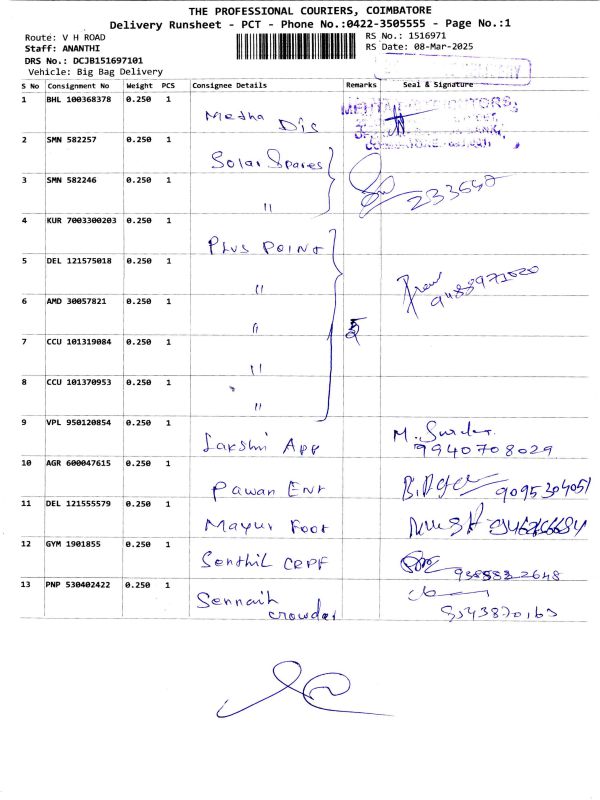 THE PROFESSIONAL COURIERS, COIMBATORE
Delivery Runsheet - PCT - Phone No.:0422-3505555 - Page No.:1
Route: V H ROAD
Staff: ANANTHI
DRS No.: DCJB151697101
Vehicle: Big Bag Delivery
RS No.: 1516971
RS Date: 08-Mar-2025
S No Consignment No Weight PCS Consignee Details Remarks Seal & Signature
1 BHL 100368378 0.250 1 Medha Dis
2 SMN 582257 0.250 1 Solar Spares
3 SMN 582246 0.250 1 "
4 KUR 7003300203 0.250 1 Plus Point
5 DEL 121575018 0.250 1 "
6 AMD 30057821 0.250 1 " 5
7 CCU 101319084 0.250 1 "
8 CCU 101370953 0.250 1 "
9 VPL 950120854 0.250 1 Lakshmi App 9940708029
10 AGR 600047615 0.250 1 Pawan Ent 9095304051
11 DEL 121555579 0.250 1 Mayur Foot
12 GYM 1901855 0.250 1 Senthil CRPF
13 PNP 530402422 0.250 1